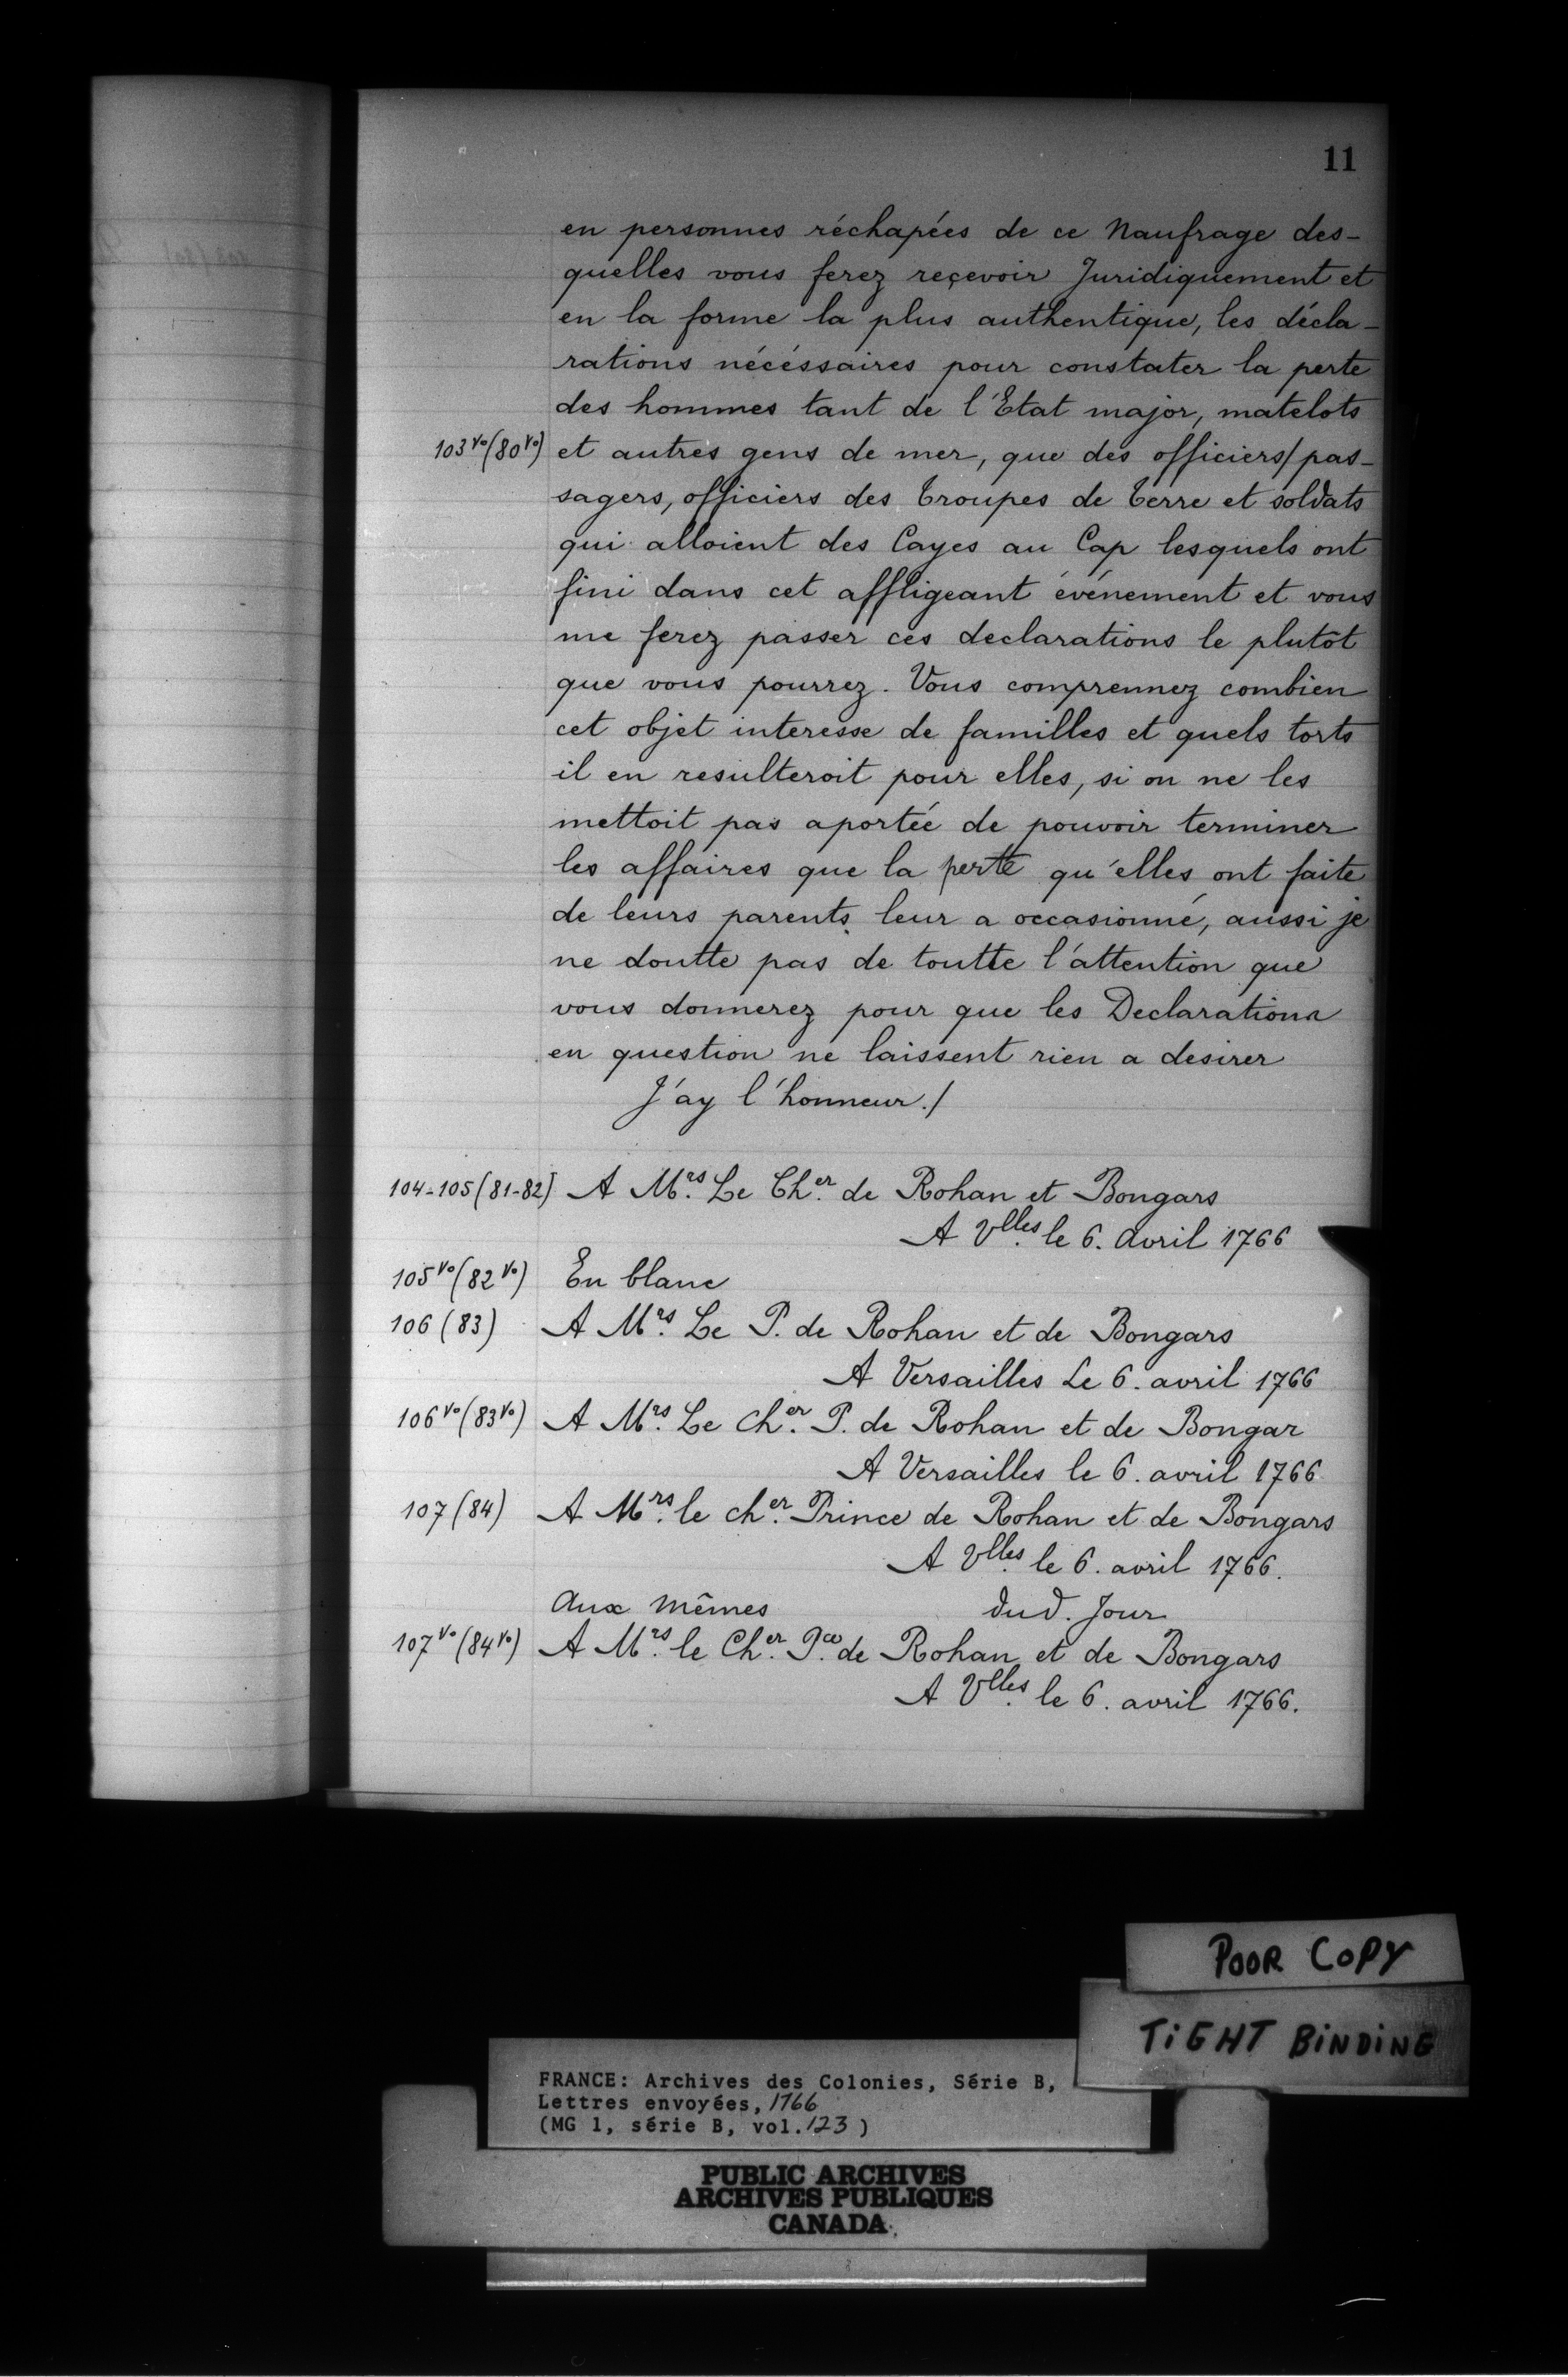 11
en personnes réchapées de ce Naufrage des-
quelles vous ferez reçevoir Juridiquement et
en la forme la plus authentique, les décla-
rations nécéssaires pour constater la perte
des hommes tant de l'Etat major, matelots
103 vo (80 vo) et autres gens de mer, que des officiers/pas-
sagers, officiers des Troupes de Terre et soldats
qui alloient des Cayes au Cap lesquels ont
fini dans cet affligeant événement et vous
me ferez passer ces declarations le plutôt
que vous pourrez. Vous comprennez combien
cet objet interesse de familles et quels torts
il en resulteroit pour elles, si on ne les
mettoit pas aportée de pouvoir terminer
les affaires que la perte qu'elles ont faite
de leurs parents leur a occasionné, aussi je
ne doutte pas de toutte l'attention que
vous donnerez pour que les Declarations
en question ne laissent rien a desirer
J'ay l'honneur./
104-105 (81-82) A Mrs. Le Cher. de Rohan et Bongars
A Vlles. le 6. Avril 1766
105 vo (82 vo) En blanc
106 (83) A Mrs. Le P. de Rohan et de Bongars
A Versailles Le 6. avril 1766
106 vo (83 vo) A Mrs. Le Cher. P. de Rohan et de Bongar
A Versailles le 6. avril 1766
107 (84) A Mrs. le cher. Prince de Rohan et de Bongars
A Vlles. le 6. avril 1766.
Aux mêmes dud. Jour
107 vo (84 vo) A Mrs. le Cher. Pce. de Rohan et de Bongars
A Vlles. le 6. avril 1766.
POOR COPY
TiGHT BiNDiNG
FRANCE: Archives des Colonies, Série B,
Lettres envoyées, 1766
(MG 1, série B, vol. 123 )
PUBLIC ARCHIVES
ARCHIVES PUBLIQUES
CANADA